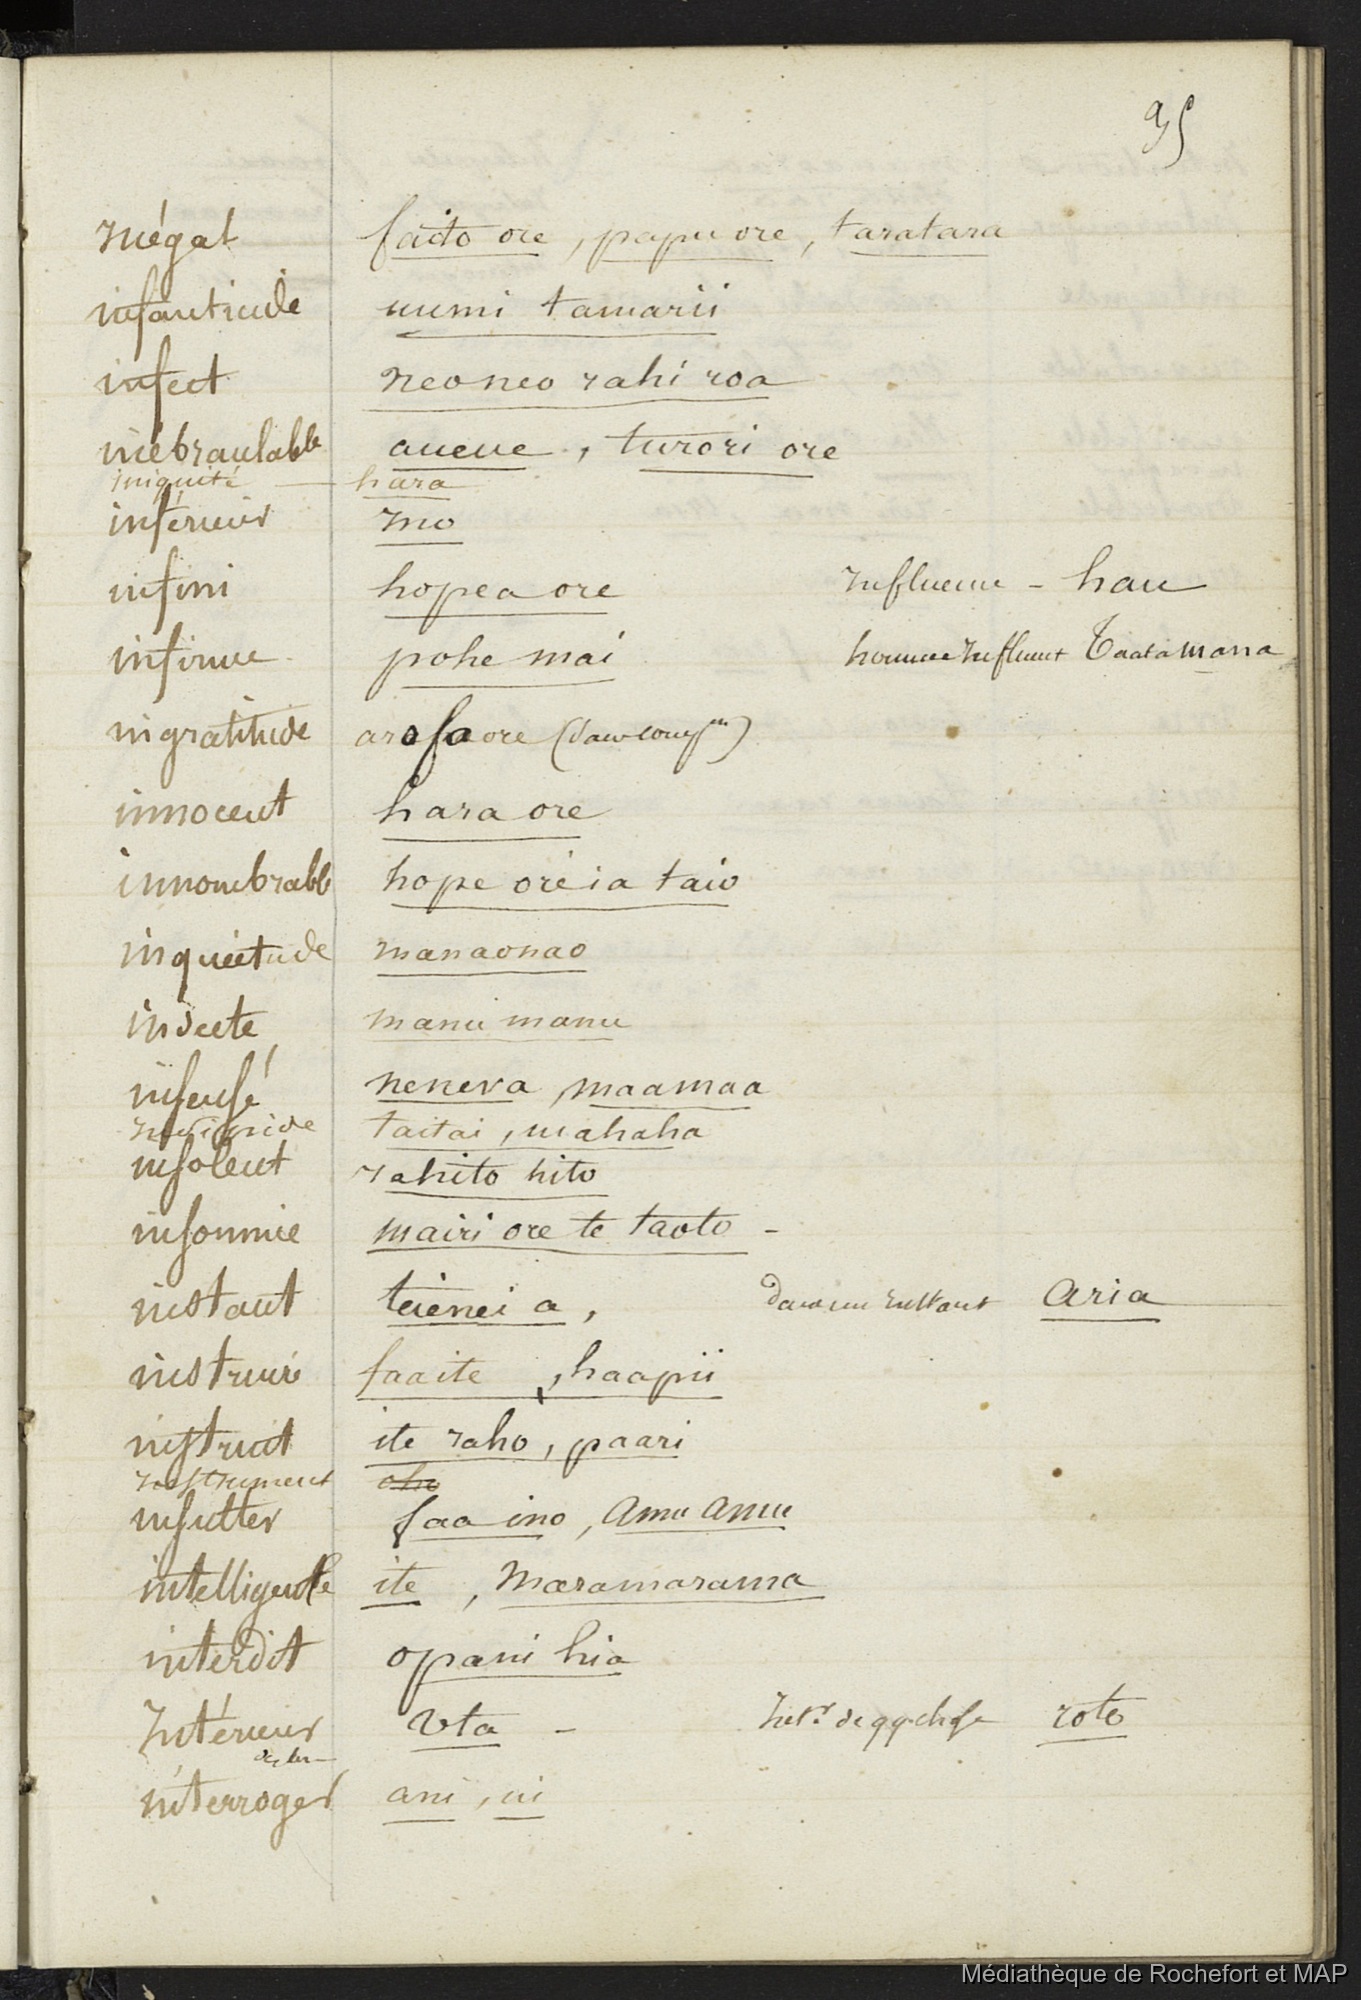 95
Inégal faito ore, papu ore, taratara
infanticide uumi tamarii
infect neoneo rahi roa
inébranlable aueue, turori ore
iniquité — hara
inférieur ino
infini hopea ore Influence - hau
infirme pohe mai homme influent Taata mana
ingratitude arofa ore
innocent hara ore
innombrable hope oré ia taio
inquiétude manaonao
insecte manu manu
insensé neneva, maamaa
Insipide taitai, mahaha
insolent vahito hito
insomnie mairi ore te taoto -
instant teienei a, dans un instant aria
instruire faaite, haapii
instruit ite raho, paari
Instrument oho
insulter faa ino, amu amu
intelligente ite, maramarama
interdit opani hia
Intérieur uta - Intr de qq chose roto
interroger ani, ui
Médiathèque de Rochefort et MAP